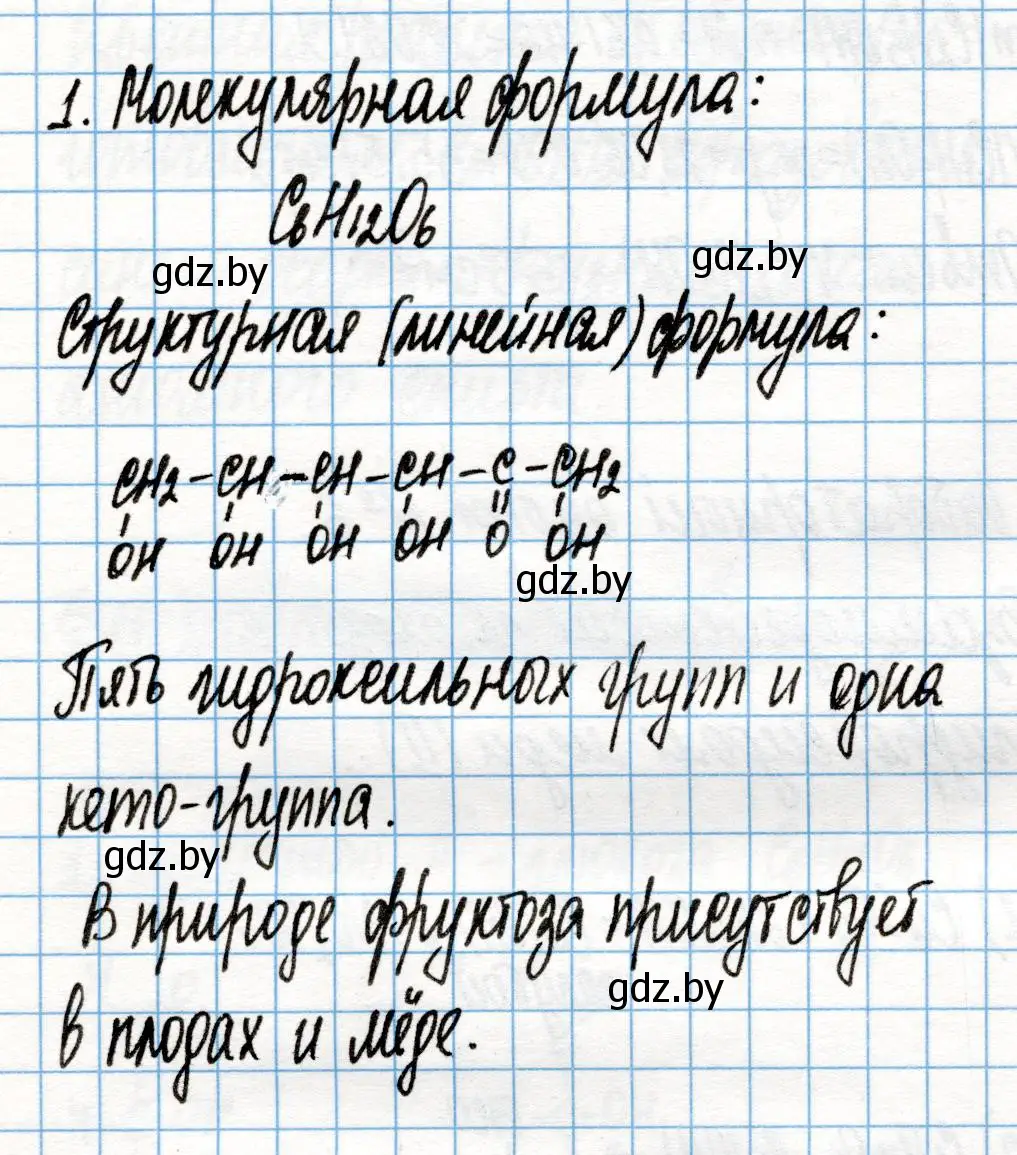 1. Молекулярная формула:
C6H12O6
gdz.by
gdz.by
Структурная (линейная) формула:
CH2-CH-CH-CH-C-CH2
OH OH OH OH O OH
gdz.by
Пять гидроксильных групп и одна
кето-группа.
gdz.by
В природе фруктоза присутствует
gdz.by
в плодах и мёде.